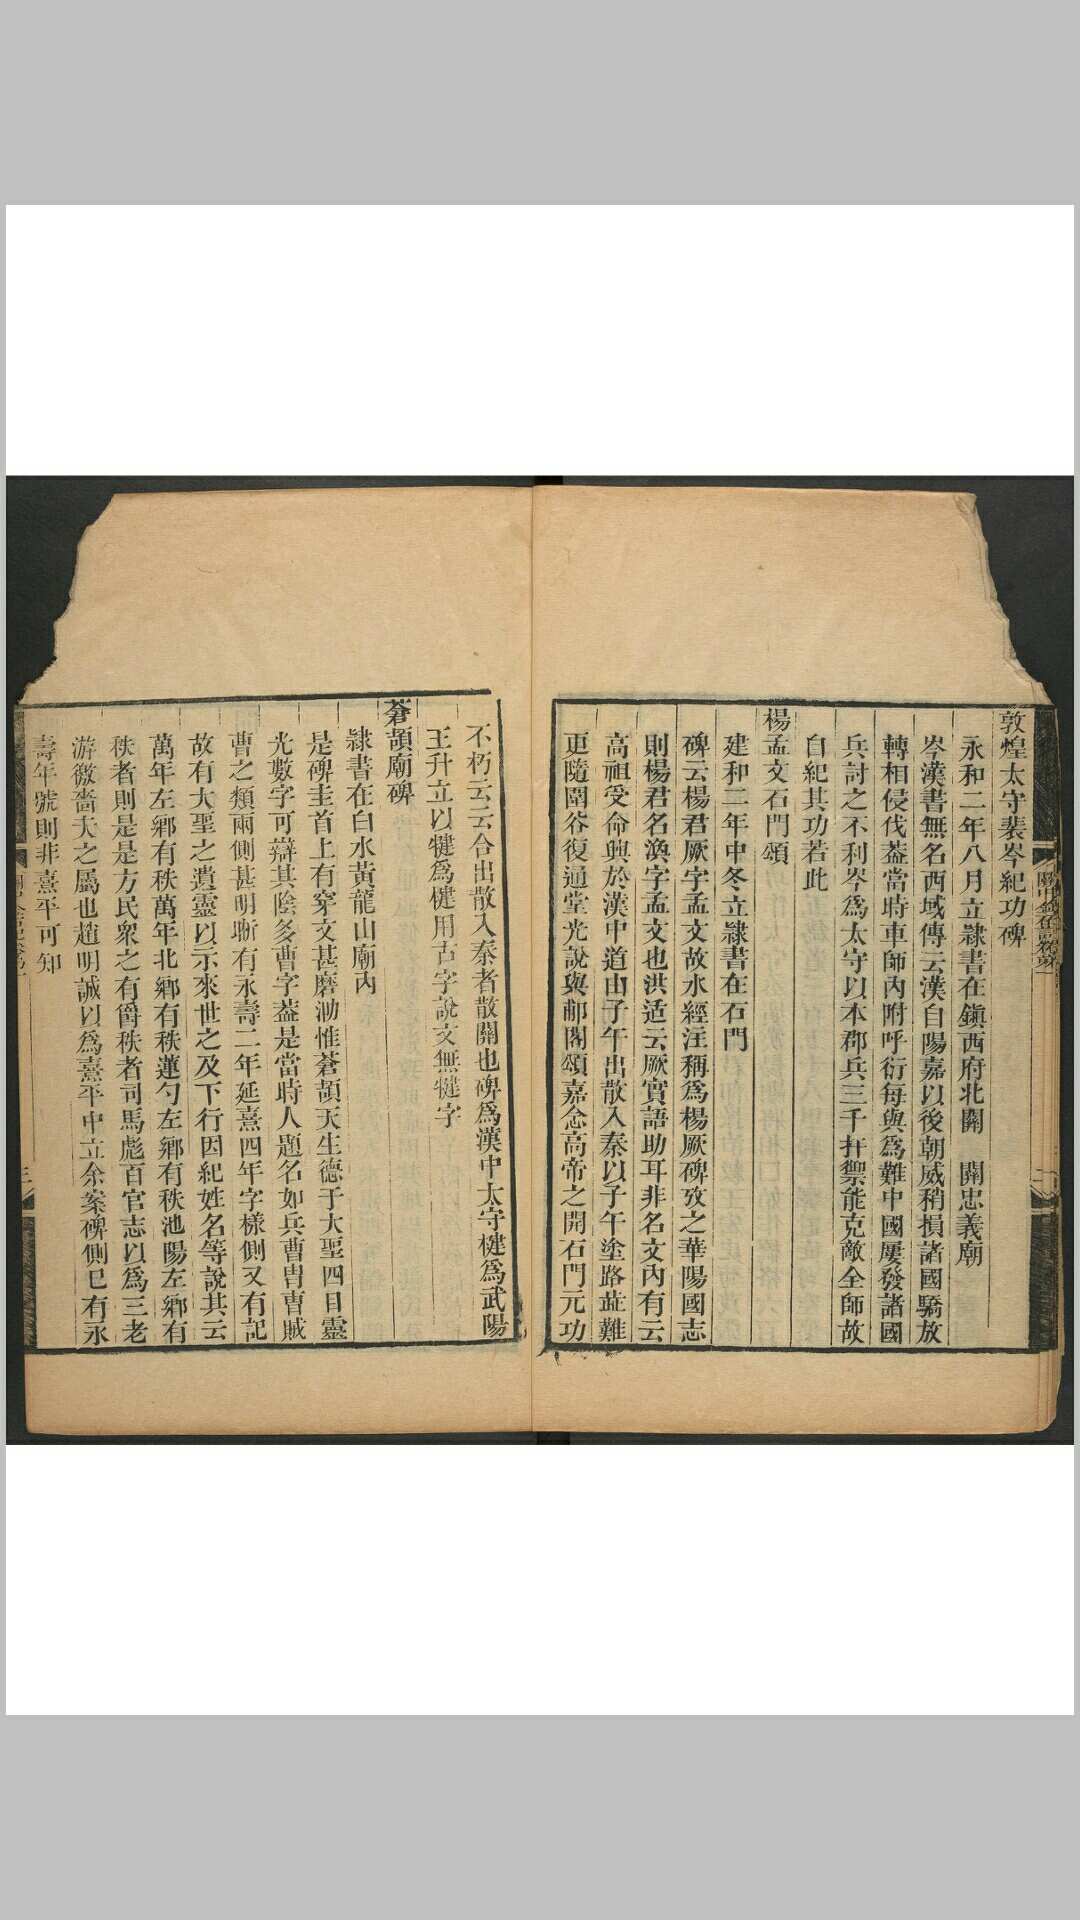 敦煌太守裴岑紀功碑
永和二年八月立隷書在鎭西府北關　關忠義廟
岑漢書無名西域傳云漢自陽嘉以後朝威稍損諸國驕放
轉相侵伐葢當時車師內附呼衍每與爲難中國屢發諸國
兵討之不利岑爲太守以本郡兵三千扞禦能克敵全師故
自紀其功若此
楊孟文石門頌
建和二年中冬立隷書在石門
碑云楊君厥字孟文故水經注稱爲楊厥碑攷之華陽國志
則楊君名渙字孟文也洪适云厥實語助耳非名文內有云
高祖受命興於漢中道由子午出散入秦以子午塗路蓝難
更隨圍谷復通堂光說與郙閣頌嘉念高帝之開石門元功
不朽云云合出散入秦者散關也碑爲漢中太守楗爲武陽
王升立以犍爲楗用古字說文無犍字
蒼頡廟碑
隷書在白水黃龍山廟內
是碑圭首上有穿文甚磨泐惟蒼頡天生德于大聖四目靈
光數字可辯其陰多曹字葢是當時人題名如兵曹冑曹賊
曹之類兩側甚明晰有永壽二年延熹四年字樣側又有記
故有大聖之遺靈以示來世之及下行因紀姓名等說其云
萬年左鄉有秩萬年北鄉有秩蓮勺左鄉有秩池陽左鄉有
秩者則是是方民衆之有爵秩者司馬彪百官志以爲三老
游徼嗇夫之屬也趙明誠以爲熹平中立余案碑側已有永
壽年號則非熹平可知
關中金石記卷第一
二
三